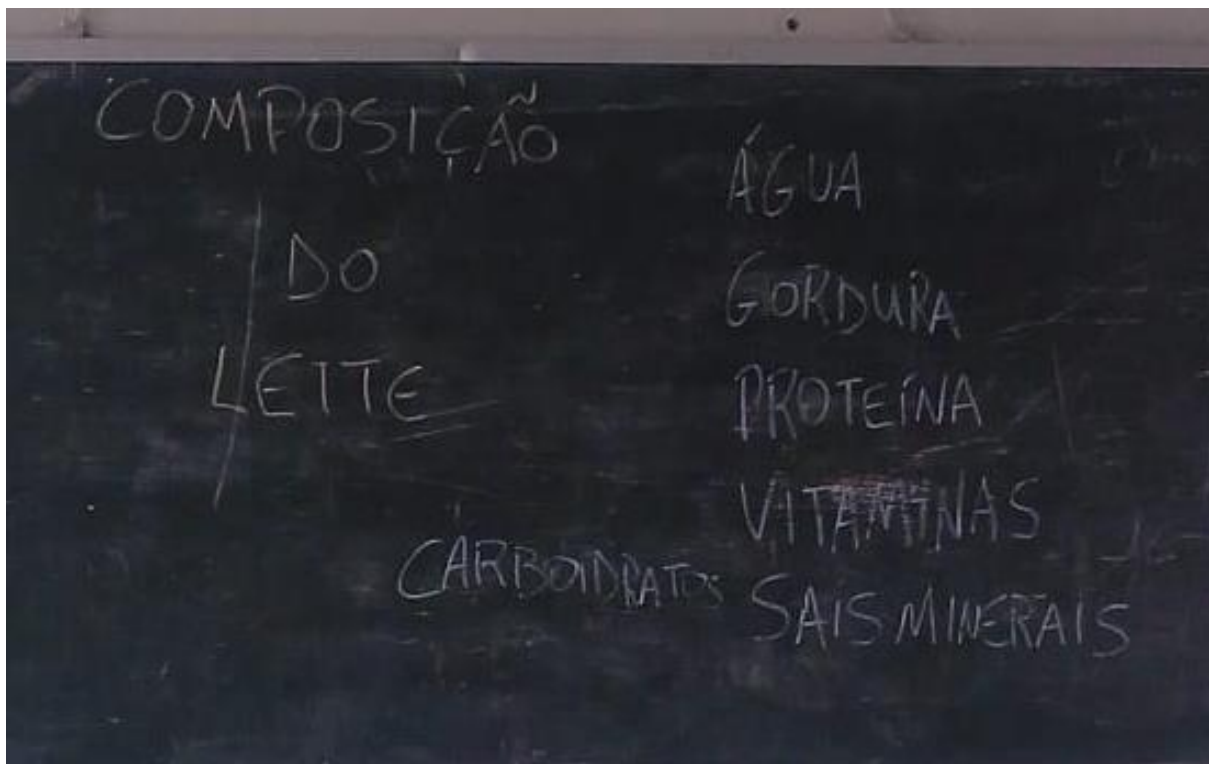 COMPOSIÇÃO
DO
LEITE
ÁGUA
GORDURA
PROTEÍNA
VITAMINAS
CARBOIDRATOS
SAIS MINERAIS